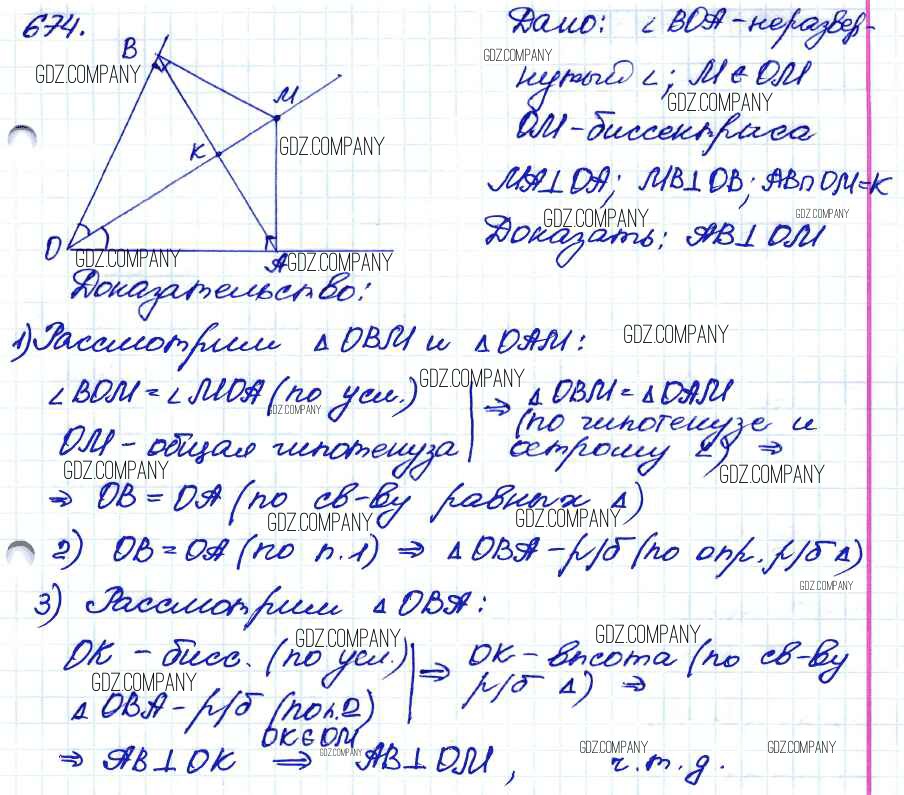 674.
B
GDZ.COMPANY
M
K
GDZ.COMPANY
O
GDZ.COMPANY
A
GDZ.COMPANY
Дано: ∠BOA - неразвер-
GDZ.COMPANY
нутый ∠; M ∈ OM
GDZ.COMPANY
OM - биссектриса
MA⊥OA; MB⊥OB; AB∩OM=K
GDZ.COMPANY
GDZ.COMPANY
Доказать: AB⊥OM
Доказательство:
1) Рассмотрим △OBM и △OAM:
GDZ.COMPANY
∠BOM = ∠MOA (по усл.) ⇒ △OBM = △OAM
GDZ.COMPANY
GDZ.COMPANY
OM - общая гипотенуза (по гипотенузе и
острому ∠) ⇒
GDZ.COMPANY
GDZ.COMPANY
⇒ OB = OA (по св-ву равных △)
GDZ.COMPANY
GDZ.COMPANY
2) OB = OA (по п.1) ⇒ △OBA - р/б (по опр. р/б △)
GDZ.COMPANY
3) Рассмотрим △OBA:
GDZ.COMPANY
GDZ.COMPANY
OK - бисс. (по усл.) ⇒ OK - высота (по св-ву
GDZ.COMPANY
р/б △) ⇒
△OBA - р/б (по п.2)
OK∈OM
⇒ AB⊥OK ⇒ AB⊥OM, ч.т.д.
GDZ.COMPANY
GDZ.COMPANY
GDZ.COMPANY